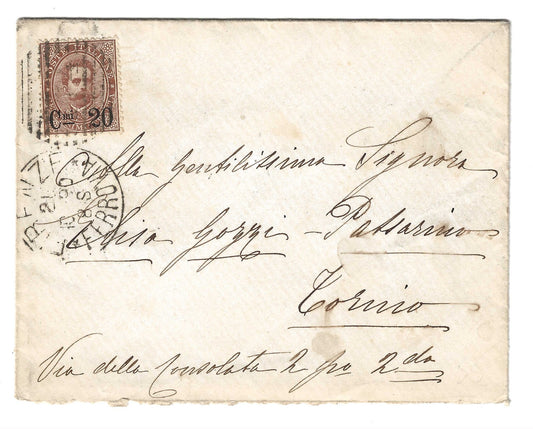 POSTE ITALIANE
Cmi. 20
FIRENZE
FERROVIA
90
8 S
Alla Gentilissima Signora
Luisa Gozzi-Passarino
Torino
Via della Consolata 2 po 2.do